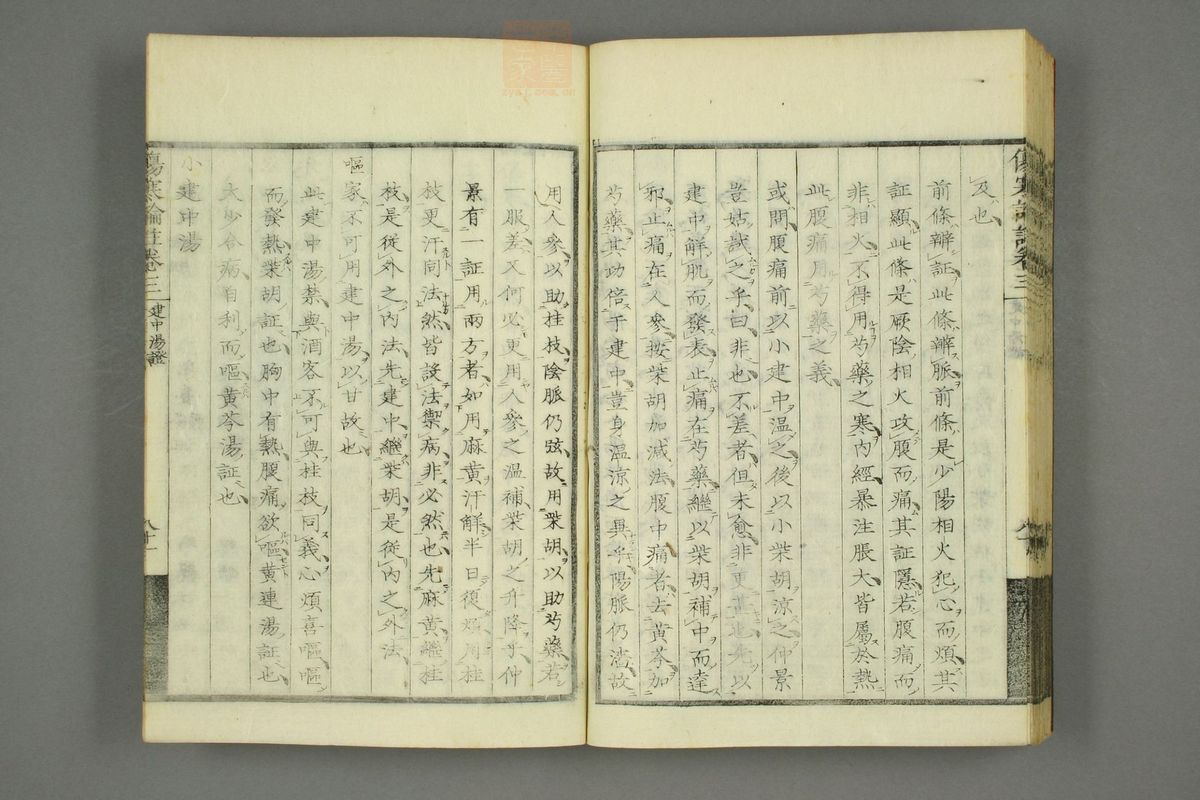 及也
前條辯証此條辯脈前條是少陽相火犯心而煩其
証顯此條是厥陰相火攻腹而痛其証隱若腹痛而
非相火不得用芍藥之寒內經暴注脹大皆屬於熱
此腹痛用芍藥之義
或問腹痛前以小建中温之後以小柴胡涼之仲景
豈姑試之乎曰非也不差者但未愈非更甚也先以
建中解肌而發表止痛在芍藥繼以柴胡補中而達
邪止痛在人參按柴胡加減法腹中痛者去黃芩加
芍藥其功倍于建中豈身温涼之異乎陽脈仍濇故
用人參以助桂枝陰脈仍弦故用柴胡以助芍藥若
一服差又何必更用人參之温補柴胡之升降乎仲
景有一証用兩方者如用麻黃汗解半日復煩用桂
枝更汗同法然皆設法禦病非必然也先麻黃繼桂
枝是從外之內法先建中繼柴胡是從內之外法
嘔家不可用建中湯以甘故也
此建中湯禁與酒客不可與桂枝同義心煩喜嘔嘔
而發熱柴胡証也胸中有熱腹痛欲嘔黃連湯証也
太少合病自利而嘔黃芩湯証也
小建中湯
傷寒論註卷三
建中湯證
八十一